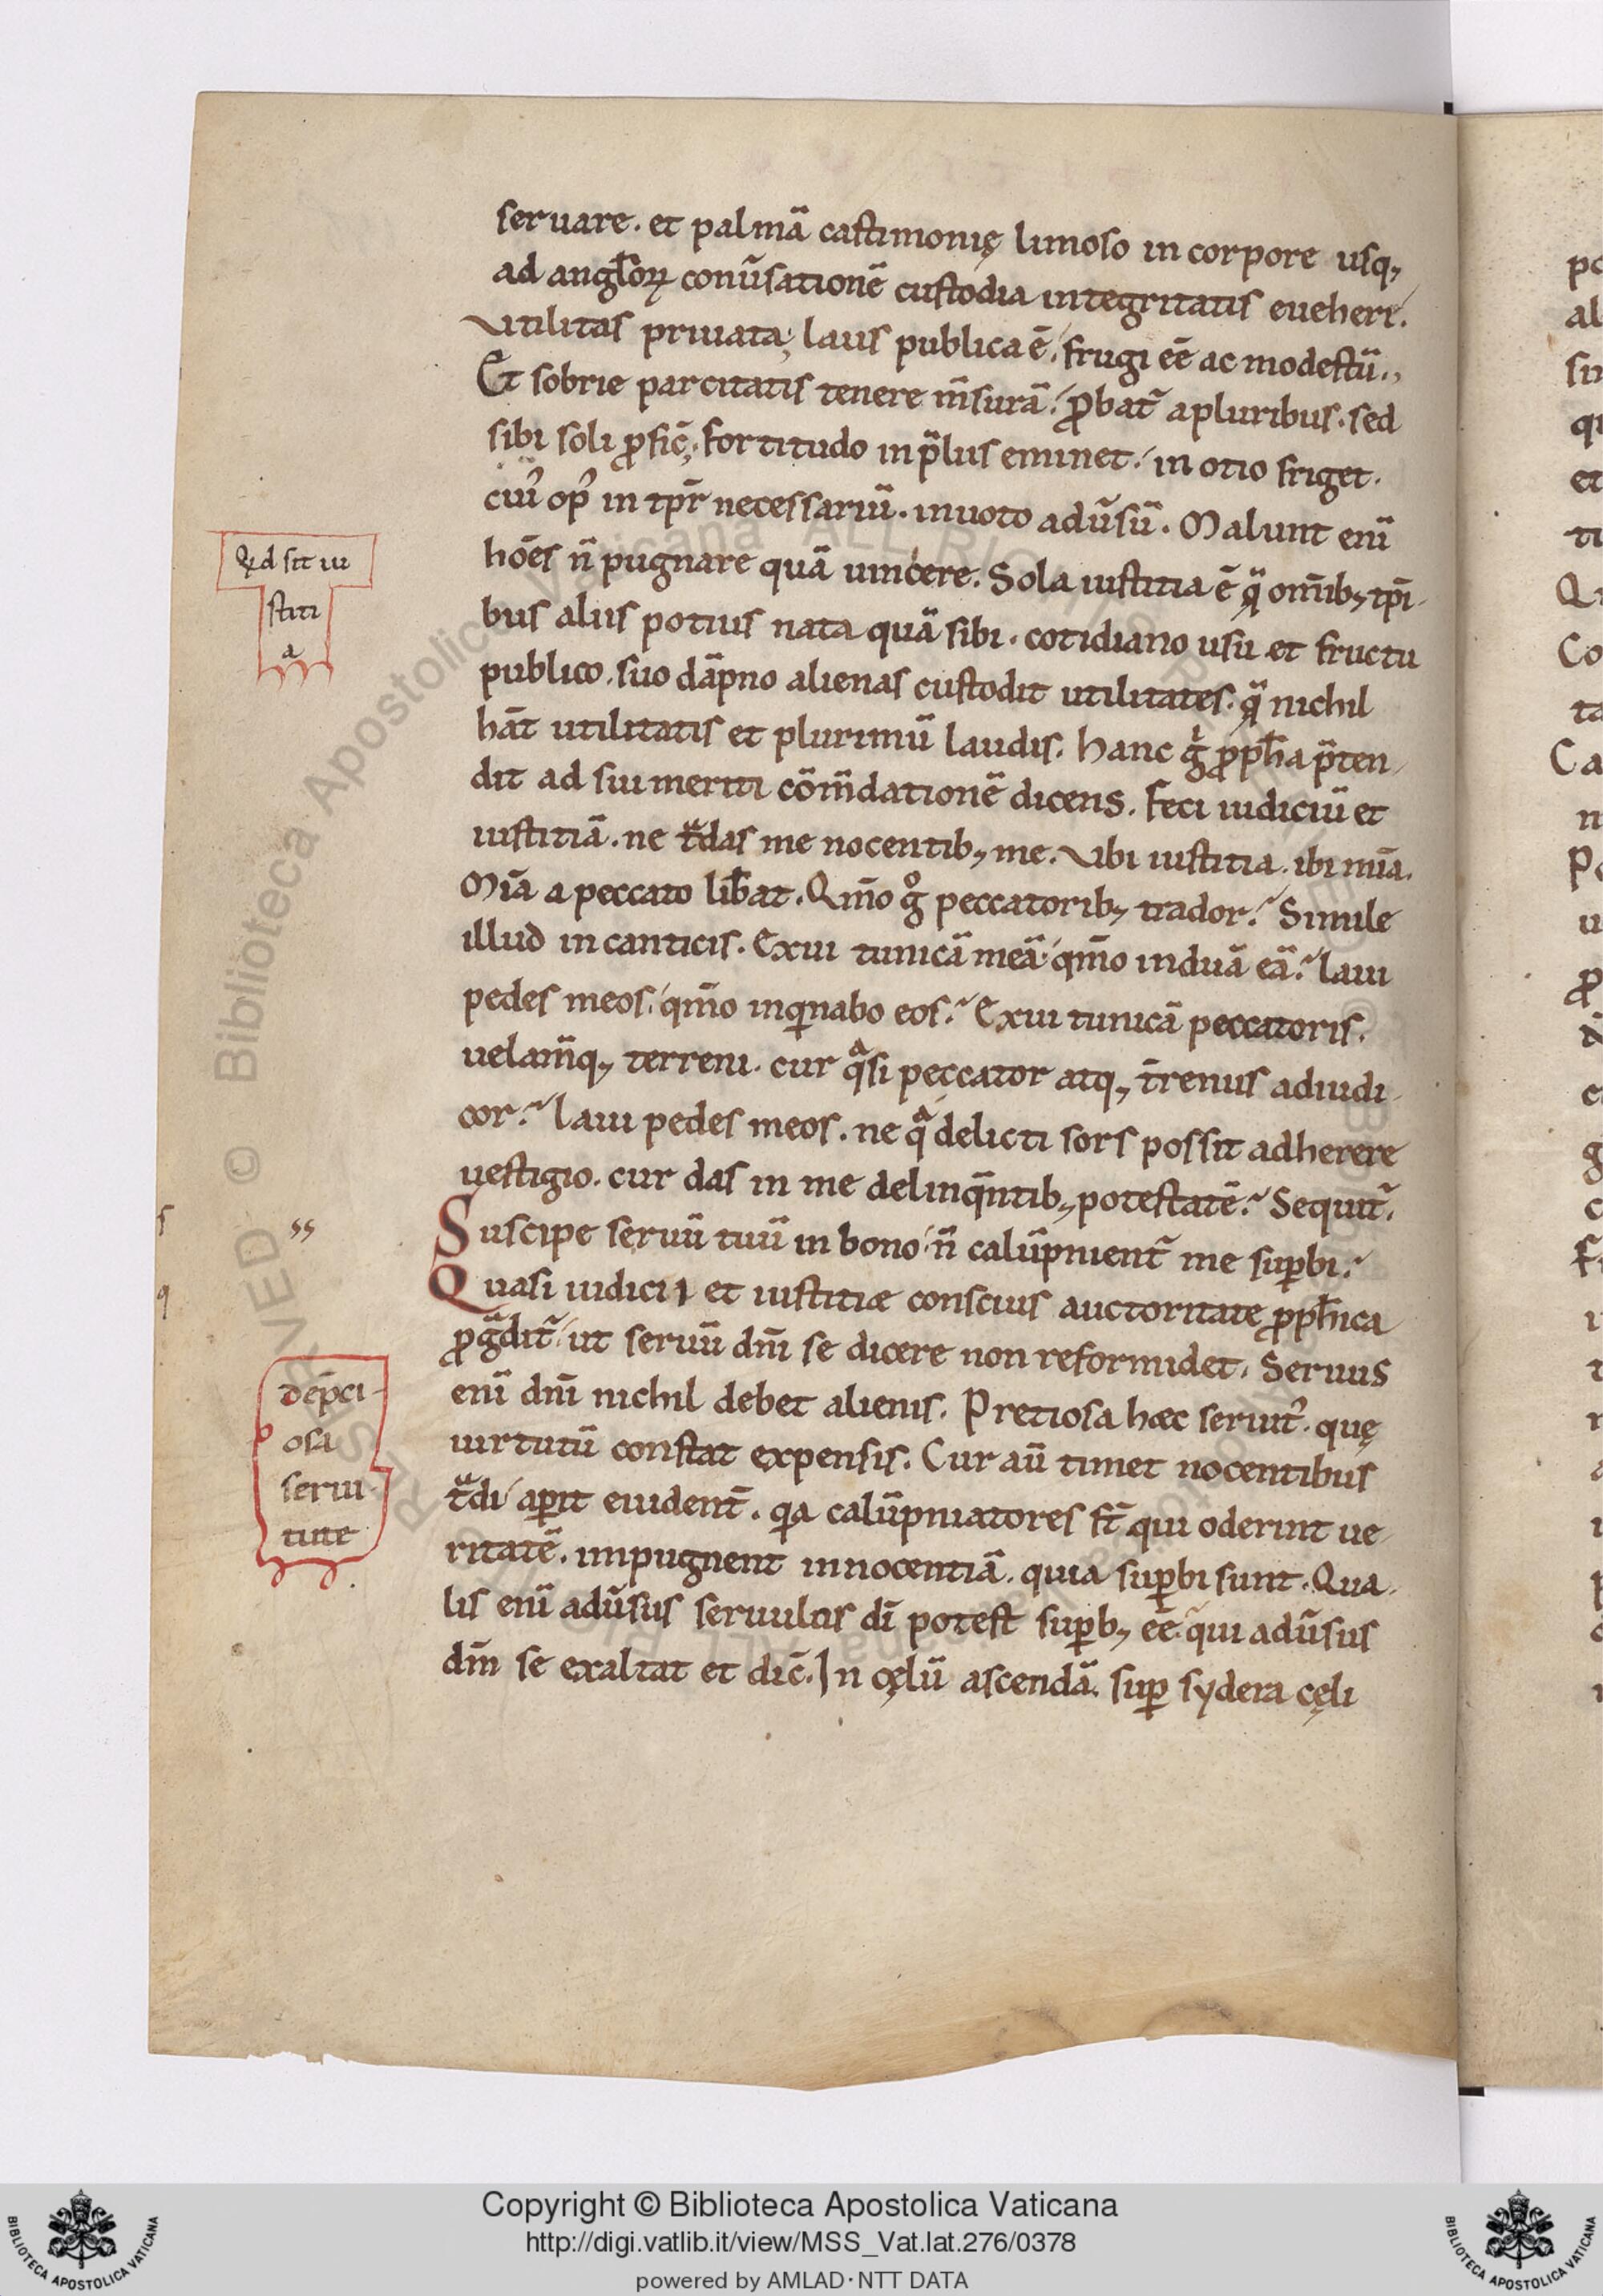 seruare. et palmā castimonię limoso in corpore usq;
ad angl̄oꝝ conūsationē custodia integritatis eueheri.
Vtilitas priuata; laus publica ē. frugi eē ac modestū.,
Et sobrie parcitatis tenere m̄surā. ꝓbat᷑ a pluribus. sed
sibi soli ꝓfic̄; fortitudo in p̄liis eminet. in otio friget.
cui᷒ op᷒ in tpr̄ necessariū. inuoto adūsū. Malunt enī
hoēs n̄ pugnare quā uincere. Sola iustitia ē q̄ om̄ib; tp̄i-
bus aliis potius nata quā sibi. cotidiano usu et fructu
publico. suo dāpno alienas custodit utilitates. q̄ nichil
hāt utilitatis et plurimū laudis. hanc gͥ ꝓph̄a p̄ten-
dit ad sui meriti cōm̄dationē dicens. feci iudiciū et
iustitiā. ne tᵃdas me nocentib; me. Vbi iustitia. ibi miīa.
Mīa a peccato lib̄at. Qm̄o gͦ peccatorib; trador? Simile
illud in canticis. Exui tunicā meā. qm̄o induā eā? laui
pedes meos. qm̄o inqͥnabo eos? Exui tunicā peccatoris.
uelam̄q; terreni. cur qᵃsi peccator atq; t̄renus adiudi-
cor? laui pedes meos. ne qᵃ delicti sors possit adherere
uestigio. cur das in me delinq̄ntib; potestatē? Sequit᷑.
Suscipe seruū tuū in bono. n̄ calūpnient᷑ me supbi.
Quasi iudicii et iustitiæ conscius auctoritate ꝓph̄ica
ꝓgᵃdit᷑. ut seruū dn̄i se dicere non reformidet. Seruus
enī dn̄i nichil debet alienis. Pretiosa hæc seruit᷒. quę
uirtutū constat expensis. Cur aū timet nocentibus
tᵃdi aꝑit euident̄. qͥa calūpniatores st̄ qui oderint ue-
ritatē. impugnent innocentiā. quia suꝑbi sunt. Qua-
lis enī adūsus seruulus dī potest suꝑb; eē. qui adūsus
dm̄ se exaltat et dic̄. In cęlū ascendā. suꝑ sydera cęli
Qd sit iu
stiti
a
ſſ
ſ
q
de p̄ci-
osa
serui-
tute
Copyright © Biblioteca Apostolica Vaticana
http://digi.vatlib.it/view/MSS_Vat.lat.276/0378
powered by AMLAD·NTT DATA
BIBLIOTECA APOSTOLICA VATICANA
BIBLIOTECA APOSTOLICA VATICANA